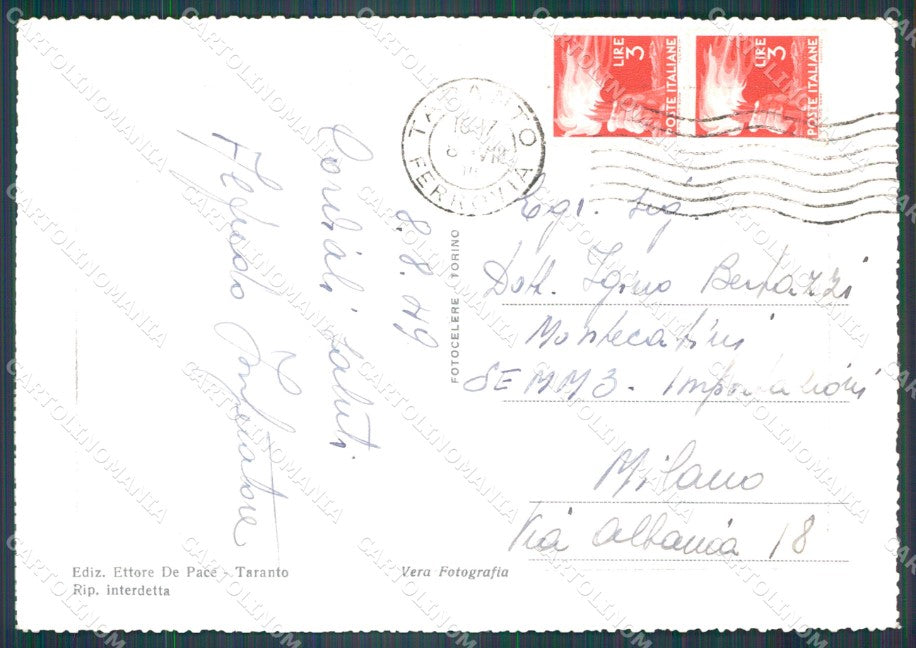 LIRE 3
POSTE ITALIANE
LIRE 3
POSTE ITALIANE
TARANTO
FERROVIA
8.8.49
Cordiali saluti
FOTOCELERE TORINO
Egr. Sig.
Dott. Igino Bertazzi
Montecatini
SEMM3 - Importazioni
Milano
Via Albania 18
Ediz. Ettore De Pace - Taranto
Rip. interdetta
Vera Fotografia
CARTOLINOMANIA